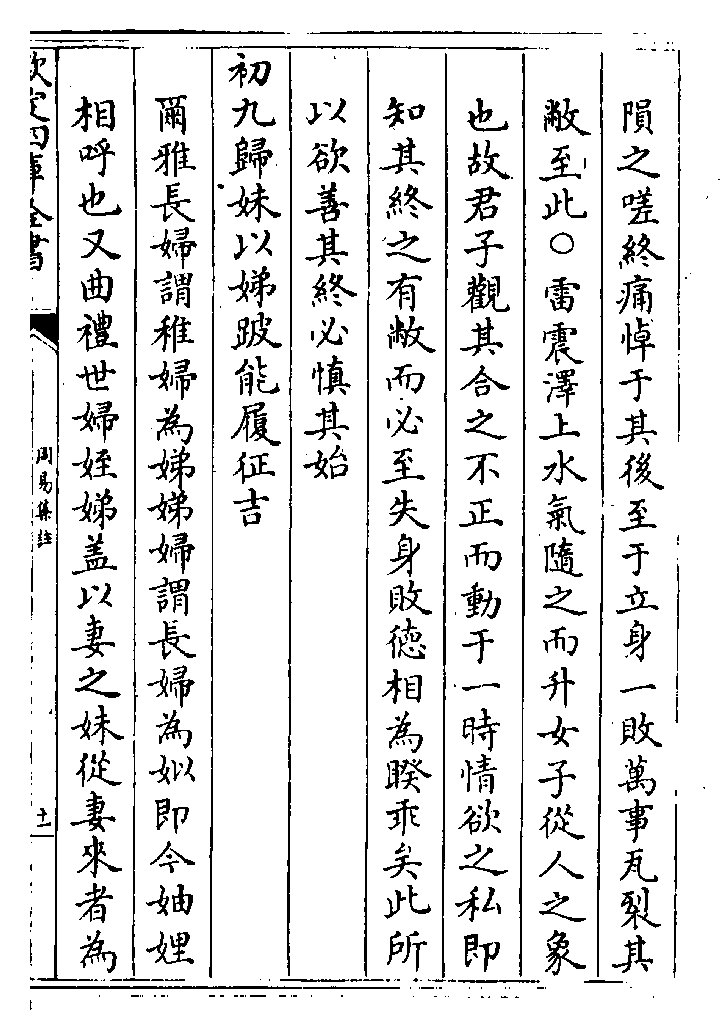 隕之嗟終痛悼于其後至于立身一敗萬事瓦裂其
敝至此○雷震澤上水氣隨之而升女子從人之象
也故君子觀其合之不正而動于一時情欲之私即
知其終之有敝而必至失身敗德相為睽乖矣此所
以欲善其終必慎其始
初九歸妹以娣跛能履征吉
爾雅長婦謂稚婦為娣娣婦謂長婦為姒即今妯娌
相呼也又曲禮世婦姪娣盖以妻之妹從妻來者為
欽定四庫全書
周易集註
十一